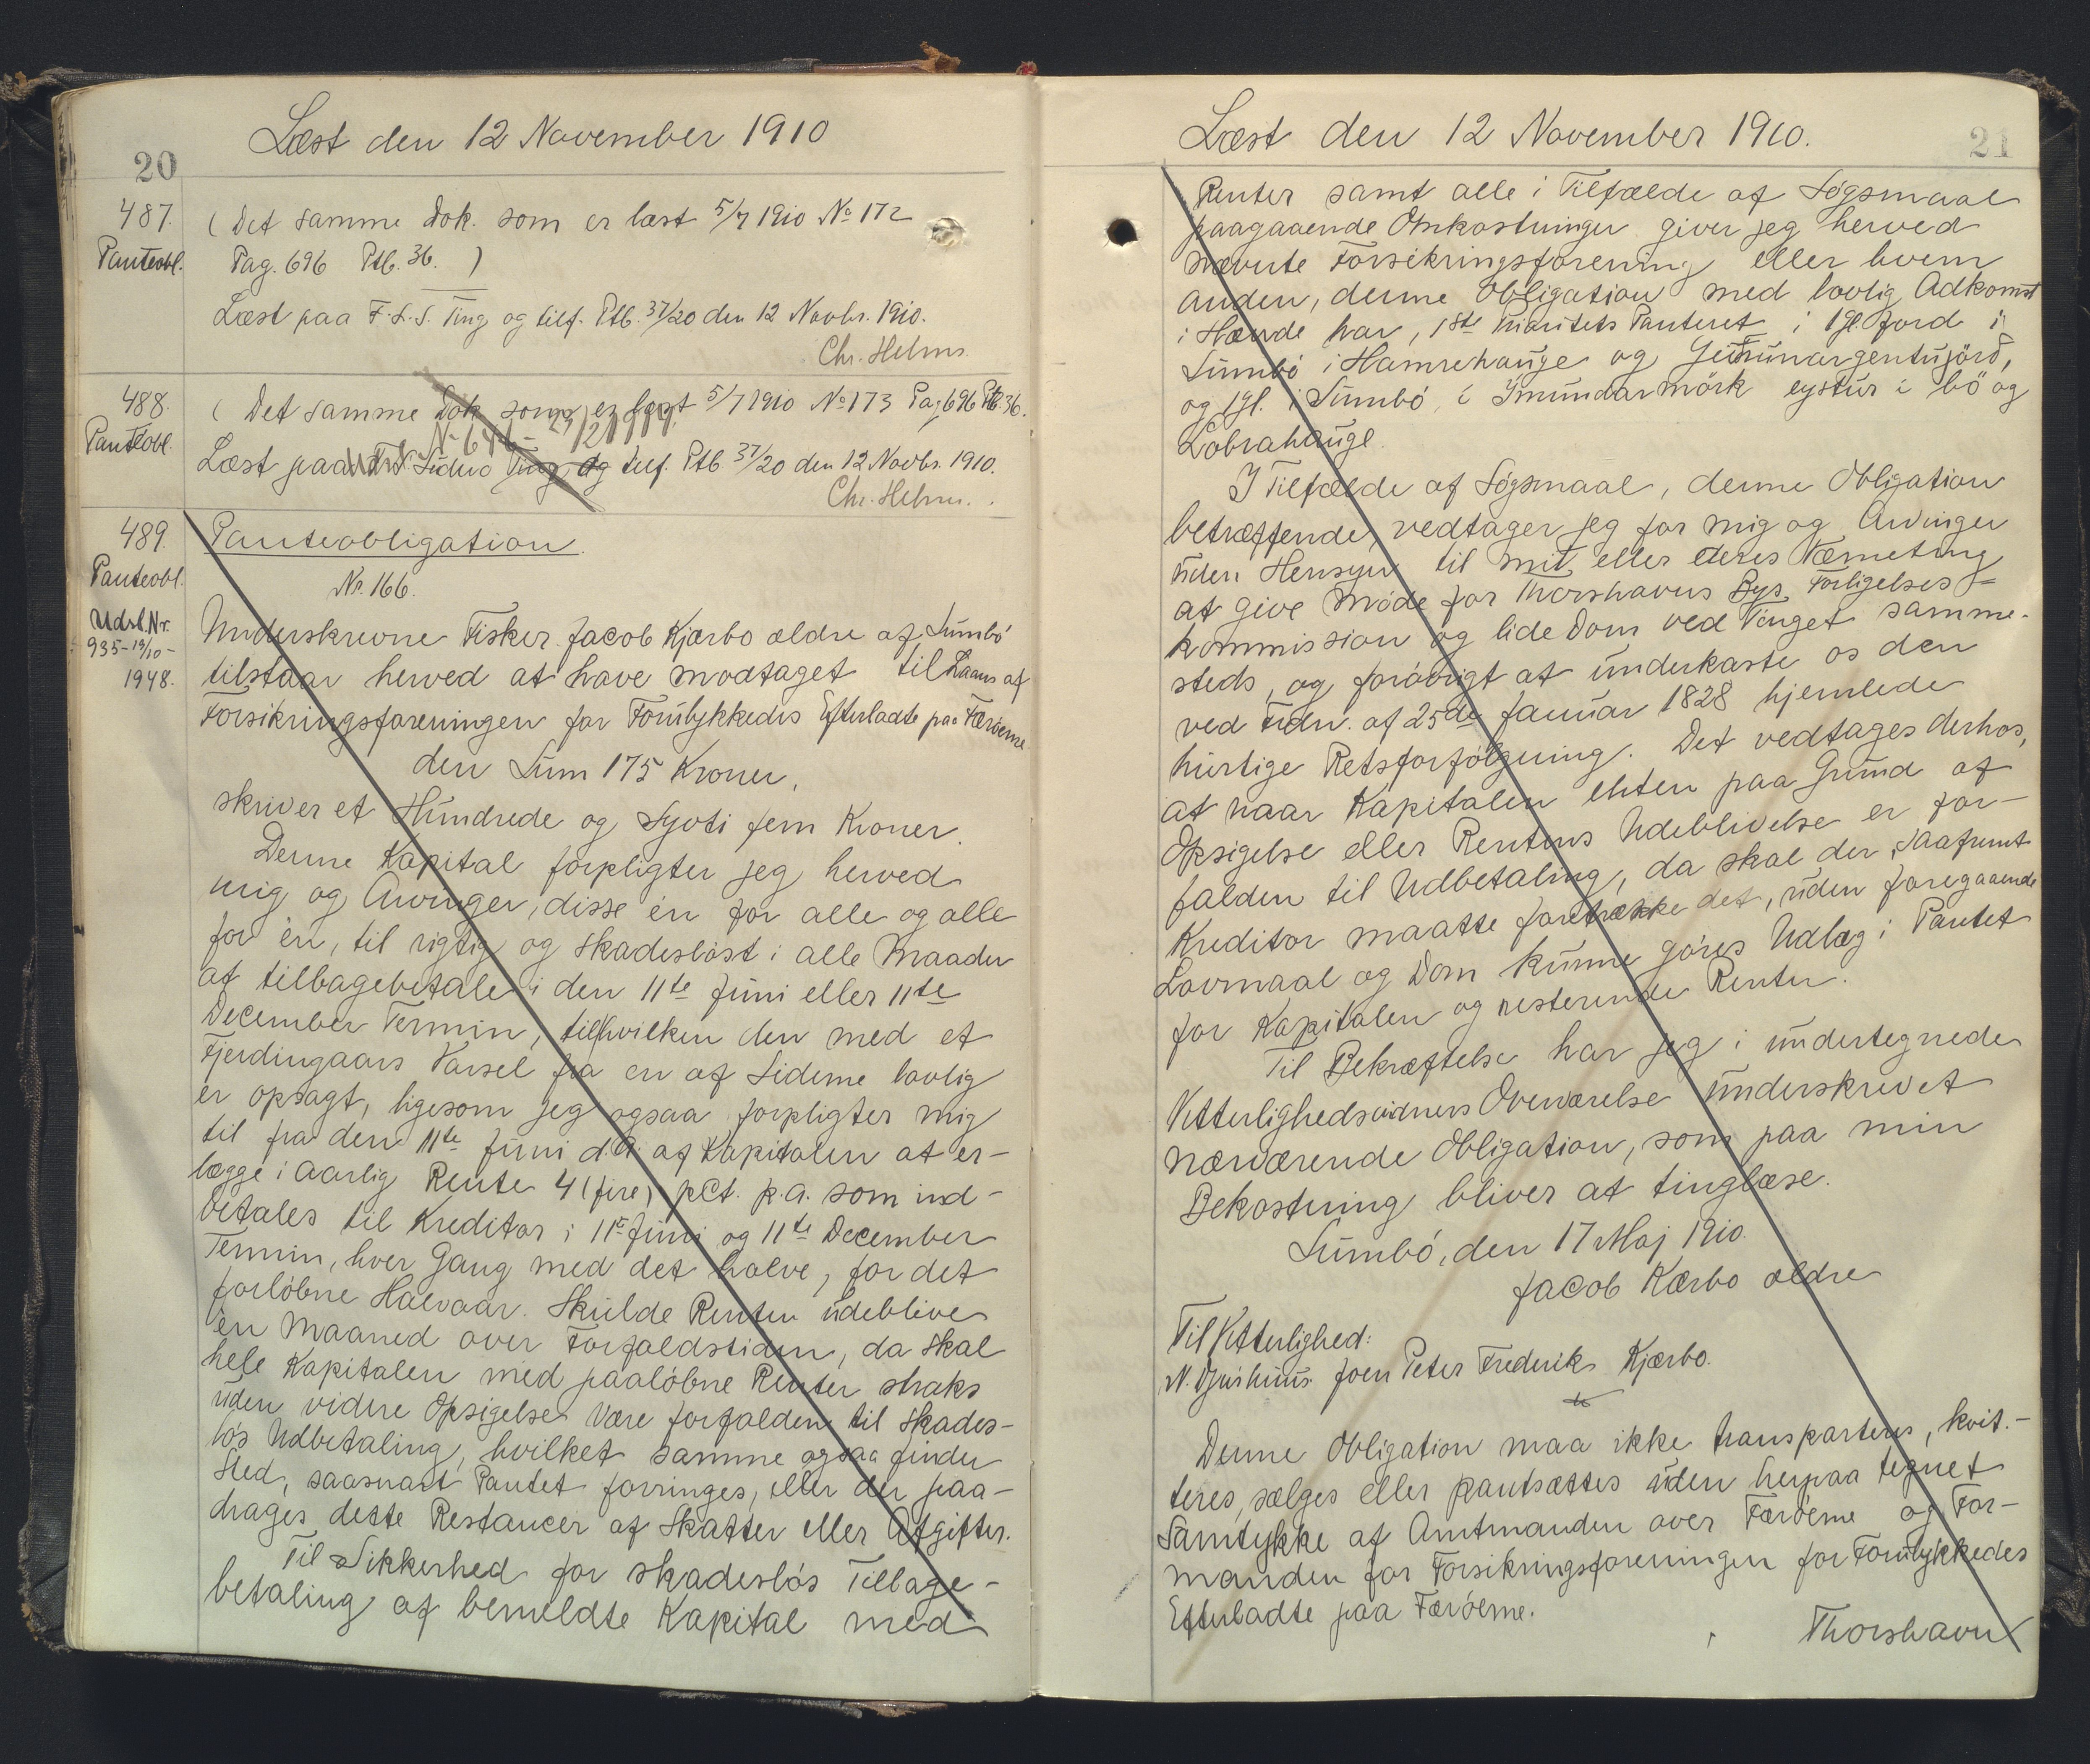 Læst den 12 November 1910
20
487. (Det samme Dok. som er læst 5/7 1910 No 172
Panteobl. Pag. 696 Ptb. 36. )
Læst paa F. L. S. Ting og tilf. Ptb. 37/20 den 12 Novbr. 1910.
Chr. Helms.
488. ( Det samme Dok. som er læst 5/7 1910 No 173 Pag 696 Ptb. 36.
Panteobl.
Læst paa Suderø Ting og tilf. Ptb. 37/20 den 12 Novbr. 1910.
Chr. Helms.
489. Panteobligation.
Panteobl. Nr. 166.
Udsl. Nr.
935-19/10-
1948.
Underskrevne Fisker Jacob Kjærbo ældre af Sumbö
tilstaar herved at have modtaget til Laans af
Forsikringsforeningen for Forulykkedes Efterladte paa Færöerne
den Sum 175 Kroner,
skriver et Hundrede og Syvti fem Kroner.
Denne Kapital forpligter jeg herved
mig og Arvinger, disse én for alle og alle
for én, til rigtig og skadeslöst i alle Maader
at tilbagebetale i den 11te Juni eller 11te
December Termin, til hvilken den med et
Fjerdingaars Varsel fra en af Siderne lovlig
er opsagt, ligesom jeg ogsaa forpligter mig
til fra den 11te Juni d.A. af Kapitalen at er-
lægge i aarlig Rente 4 (fire) pCt. p.a. som ind-
betales til Kreditor i 11te Juni og 11te December
Termin, hver Gang med det halve, for det
forlöbne Halvaar. Skulde Renten udeblive
én Maaned over Forfaldstiden, da skal
hele Kapitalen med paalöbne Renter straks
uden videre Opsigelse være forfalden til skades-
lös Udbetaling, hvilket samme ogsaa finder
Sted, saasnart Pantet forringes, eller der paa-
drages dette Restancer af Skatter eller Afgifter.
Til Sikkerhed for skadeslös Tilbage-
betaling af bemeldte Kapital med
Læst den 12 November 1910.
21
Renter samt alle i Tilfælde af Sögsmaal
paagaaende Omkostninger giver jeg herved
nævnte Forsikringsforening eller hvem
anden, denne Obligation med lovlig Adkomst
i Hænde har, 1ste Prioritets Panteret i 1 gl. Jord i
Sumbö i Hamrehauge og
og 1 gl. i Sumbö, i Ímundarmörk eystur i bö og
Lobrahauge.
I Tilfælde af Sögsmaal, denne Obligation
betræffende, vedtager jeg for mig og Arvinger
uden Hensyn til mit eller deres Værneting
at give Möde for Thorshavns Bys Forligelses-
kommission og lide Dom ved Tinget samme-
steds, og forövrigt at underkaste os den
ved Frdn. af 25de Januar 1828 hjemlede
hurtige Retsforfölgning. Det vedtages derhos,
at naar Kapitalen enten paa Grund af
Opsigelse eller Rentens Udeblivelse er for-
falden til Udbetaling, da skal der, saafremt
Kreditor maatte foretrække det, uden foregaaende
Lovmaal og Dom kunne göres Udlæg i Pantet
for Kapitalen og resterende Renter.
Til Bekræftelse har jeg i undertegnede
Vitterlighedsvidners Overværelse underskrevet
nærværende Obligation, som paa min
Bekostning bliver at tinglæse.
Sumbö, den 17 Maj 1910.
Jacob Kærbo ældre
Til Vitterlighed:
N. Djurhuus. Joen Peter Frederik Kjærbo.
Denne Obligation maa ikke transporteres, kvit.-
teres, sælges eller pantsættes uden herpaa tegnet
Samtykke af Amtmanden over Færöerne og For-
manden for Forsikringsforeningen for Forulykkedes
Efterladte paa Færöerne.
Thorshavn